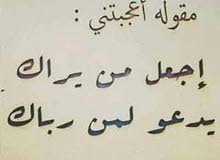 مقوله أعجبتني :
إجعل من يراك
يدعو لمن رباك